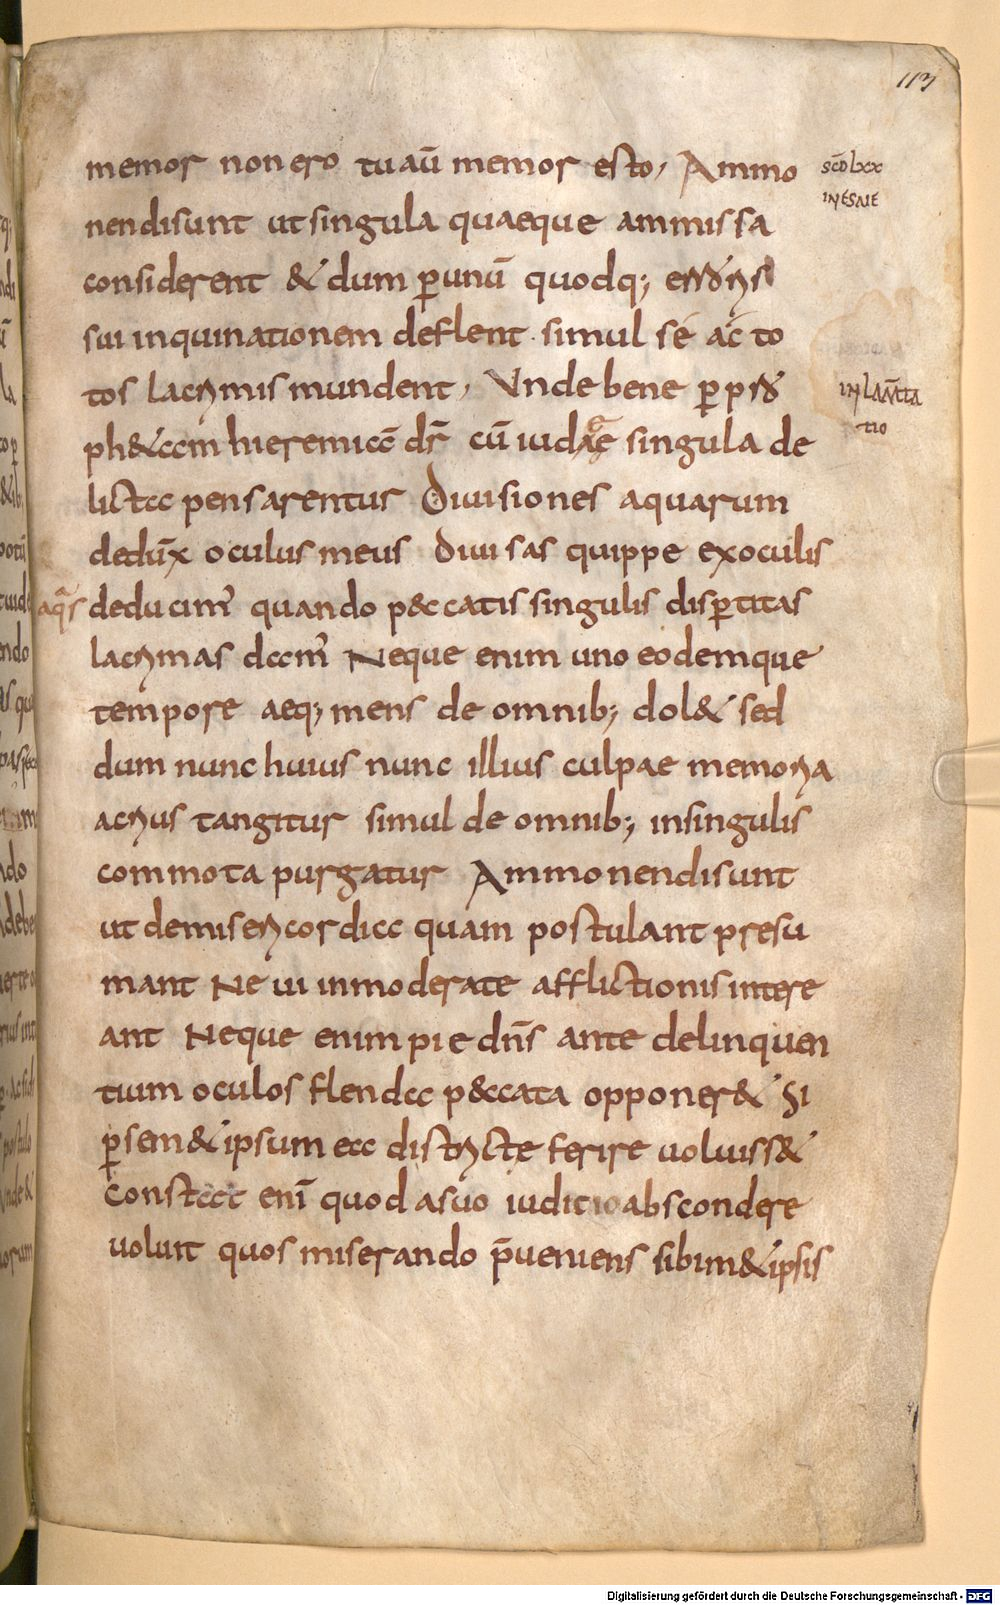 113
memor non ero tu aū memor esto, Ammo
scd̄o lxx
IN ESAIE
nendi sunt ut singula quaeque ammissa
considerent & dum ꝑ unū quodq;
sui inquinationem deflent · simul se ac to
tos lacrymis mundent, Unde bene ꝑ
IN LAMTA
TIO
ph&am hieremiā dr̄ cū iudaeae singula de
licta pensarentur Diuisiones aquarum
dedux̄ oculus meus Diuisas quippe ex oculis
aq̄s deducim' quando peccatis singulis disꝑtitas
lacrymas dam' Neque enim uno eodemque
tempore aeq; mens de omnib; dol& sed
dum nunc huius nunc illius culpae memoria
acrius tangitur simul de omnib; in singulis
commota purgatur Ammonendi sunt
ut de misericordia quam postulant presu
mant Ne ui inmoderate afflictionis intere
ant Neque enim pie dn̄s ante delinquen
tium oculos flenda peccata opponer& Si
ꝑ sem&ipsum ea districte ferire uoluiss&
Constat enī quod a suo iuditio abscondere
uoluit quos miserando p̄ueniens sibim&ipsis
Digitalisierung gefördert durch die Deutsche Forschungsgemeinschaft - DFG